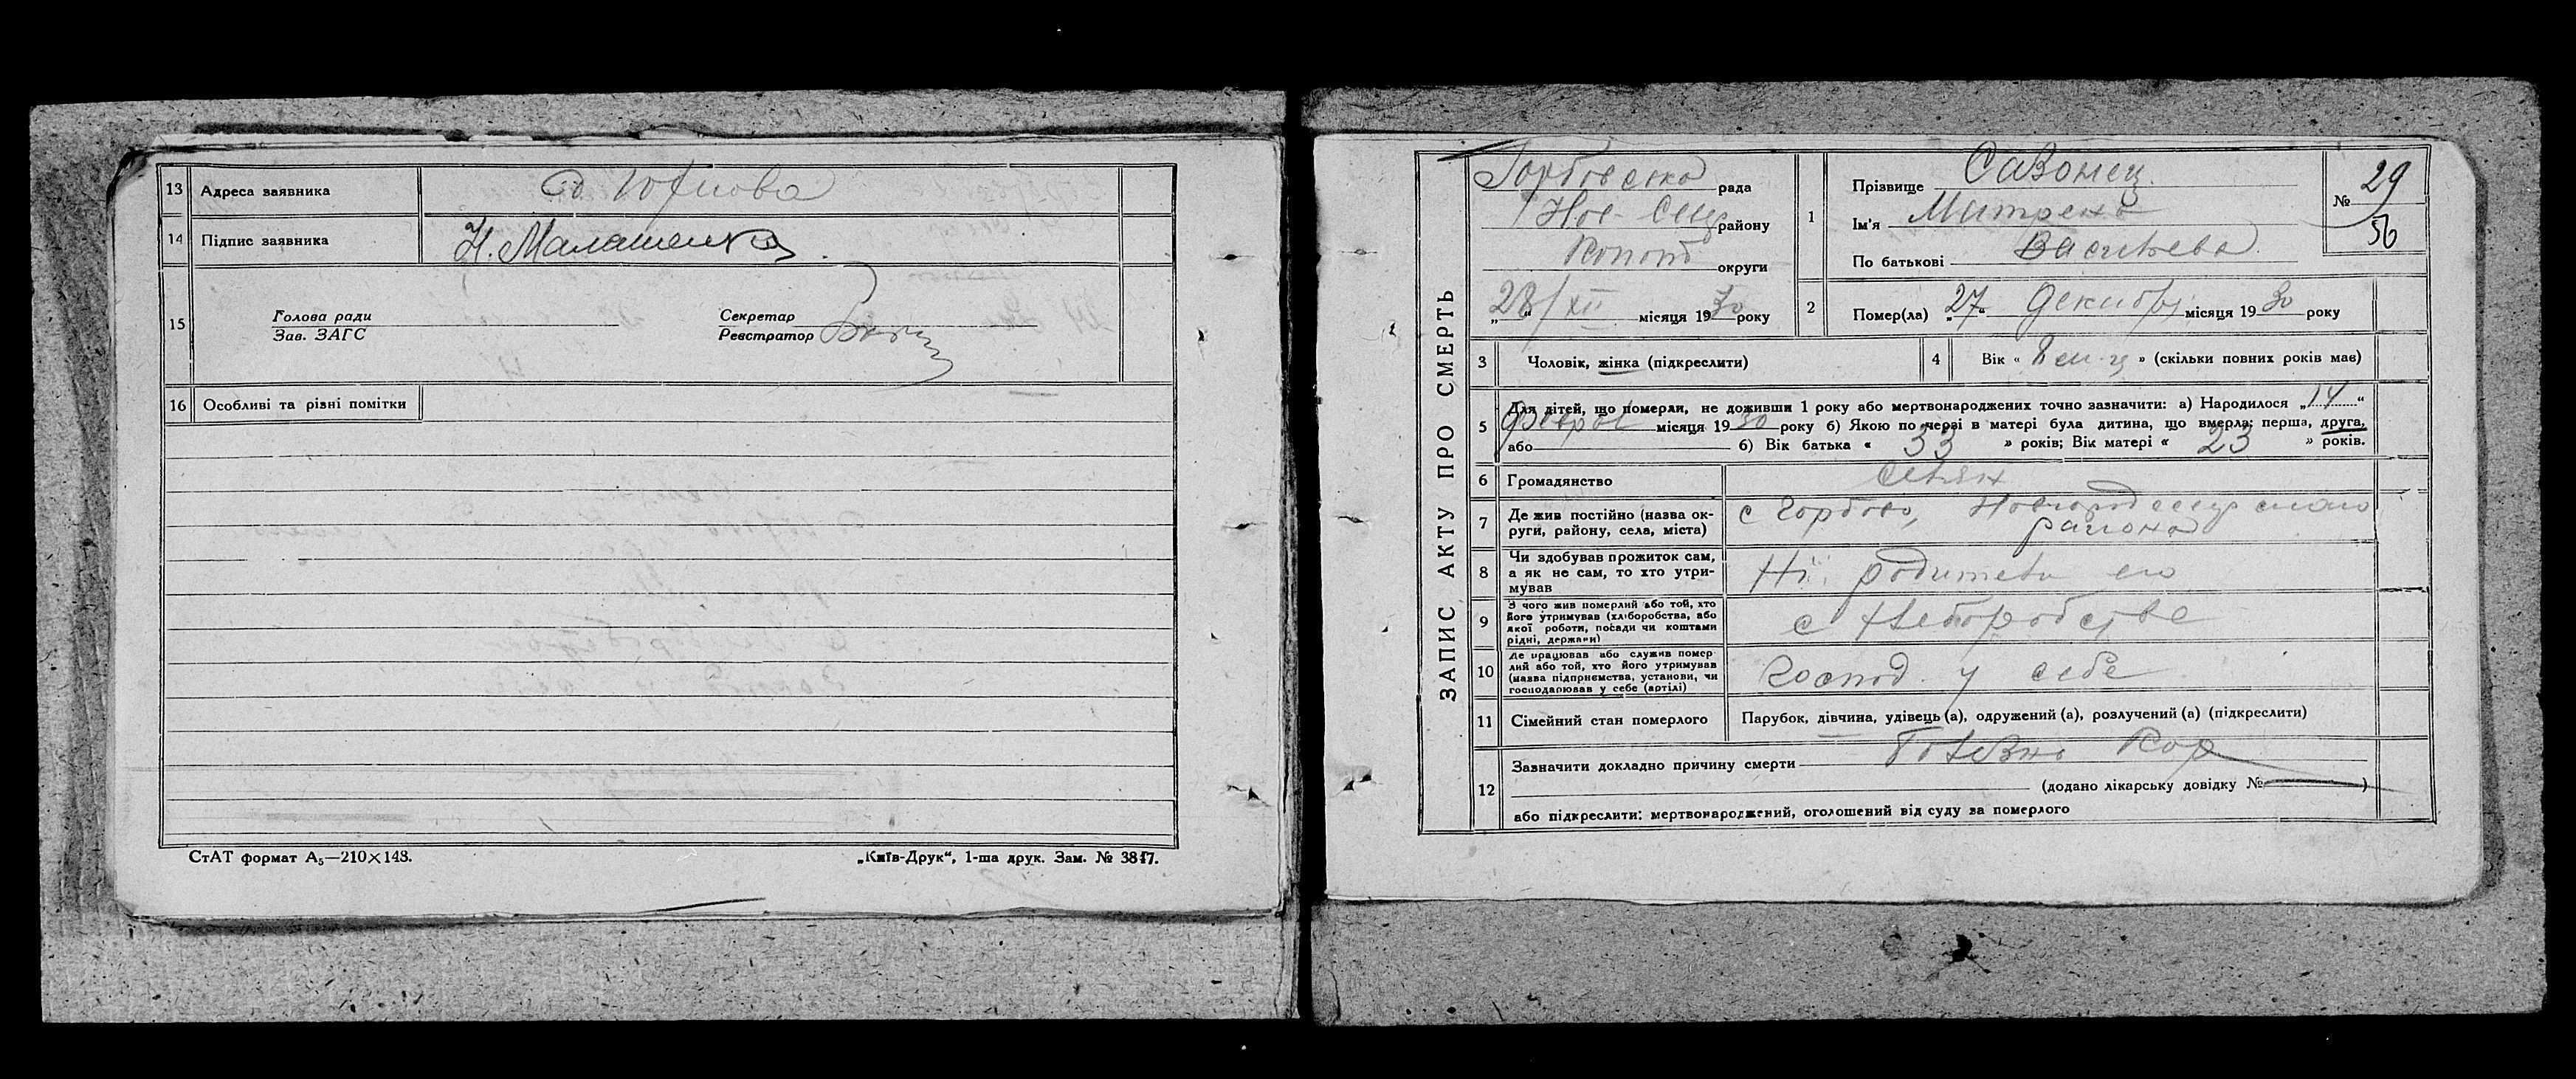 13 Адреса заявника
14 Підпис заявника Н. Малашенко
15 Голова ради
Зав. ЗАГС
Секретар
Реєстратор
16 Особливі та різні помітки
СтАТ формат А₅—210×148.
„Київ-Друк“, 1-ша друк. Зам. № 3817.
ЗАПИС АКТУ ПРО СМЕРТЬ
Горбовська рада
району
округи
„28“/XII місяця 1930 року
1 Прізвище Савонец
Ім'я Митрена
По батькові Васильева
№ 29
56
2 Помер(ла) „27“ Декабр місяця 1930 року
3 Чоловік, жінка (підкреслити)
4 Вік « » (скільки повних років має)
5 Для дітей, що померли, не доживши 1 року або мертвонароджених точно зазначити: а) Народилося „14“
Феврал місяця 1930 року б) Якою по черві в матері була дитина, що вмерла: перша, друга,
або б) Вік батька « 33 » років; Вік матері « 23 » років.
6 Громадянство Селян
7 Де жив постійно (назва ок-
руги, району, села, міста)
с Горбово, Новгордсеверского
района
8 Чи здобував прожиток сам,
а як не сам, то хто утри-
мував
Ні, родители его
9 З чого жив померлий або той, хто
його утримував (хліборобства, або
якої роботи, посади чи коштами
рідні, держави)
с хлеборобства
10 Де працював або служив помер-
лий або той, хто його утримував
(назва підприємства, установи, чи
господарював у себе (артілі)
Господ. у себе
11 Сімейний стан померлого Парубок, дівчина, удівець (а), одружений (а), розлучений (а) (підкреслити)
12 Зазначити докладно причину смерти Болезнь Кор
(додано лікарську довідку № )
або підкреслити: мертвонароджений, оголошений від суду за померлого